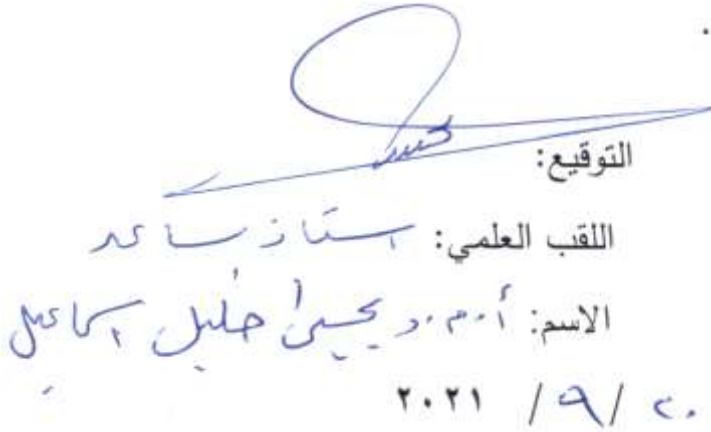 التوقيع:
اللقب العلمي: استاذ مساعد
الاسم: أ.م.د يحيى خليل اسماعيل
٢٠ / ٩ / ٢٠٢١